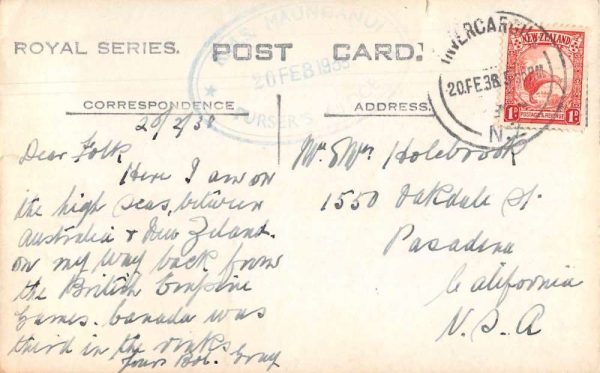 ROYAL SERIES.
POST CARD.
MAUNGANUI
20 FEB 1938
PURSER'S
INVERCARGILL
20.FE.38.5
N.Z.
NEW-ZEALAND
1D 1D
CORRESPONDENCE
ADDRESS
20/2/38
Dear Folk
Here I am on
the high seas, between
Australia & New Zeland.
on my way back from
the British Empire
Games. Canada was
third in the rinks
Yours Bob. Gray
Mr & Mrs Holebrook
1550 Oakdale St.
Pasadena
California
U.S.A